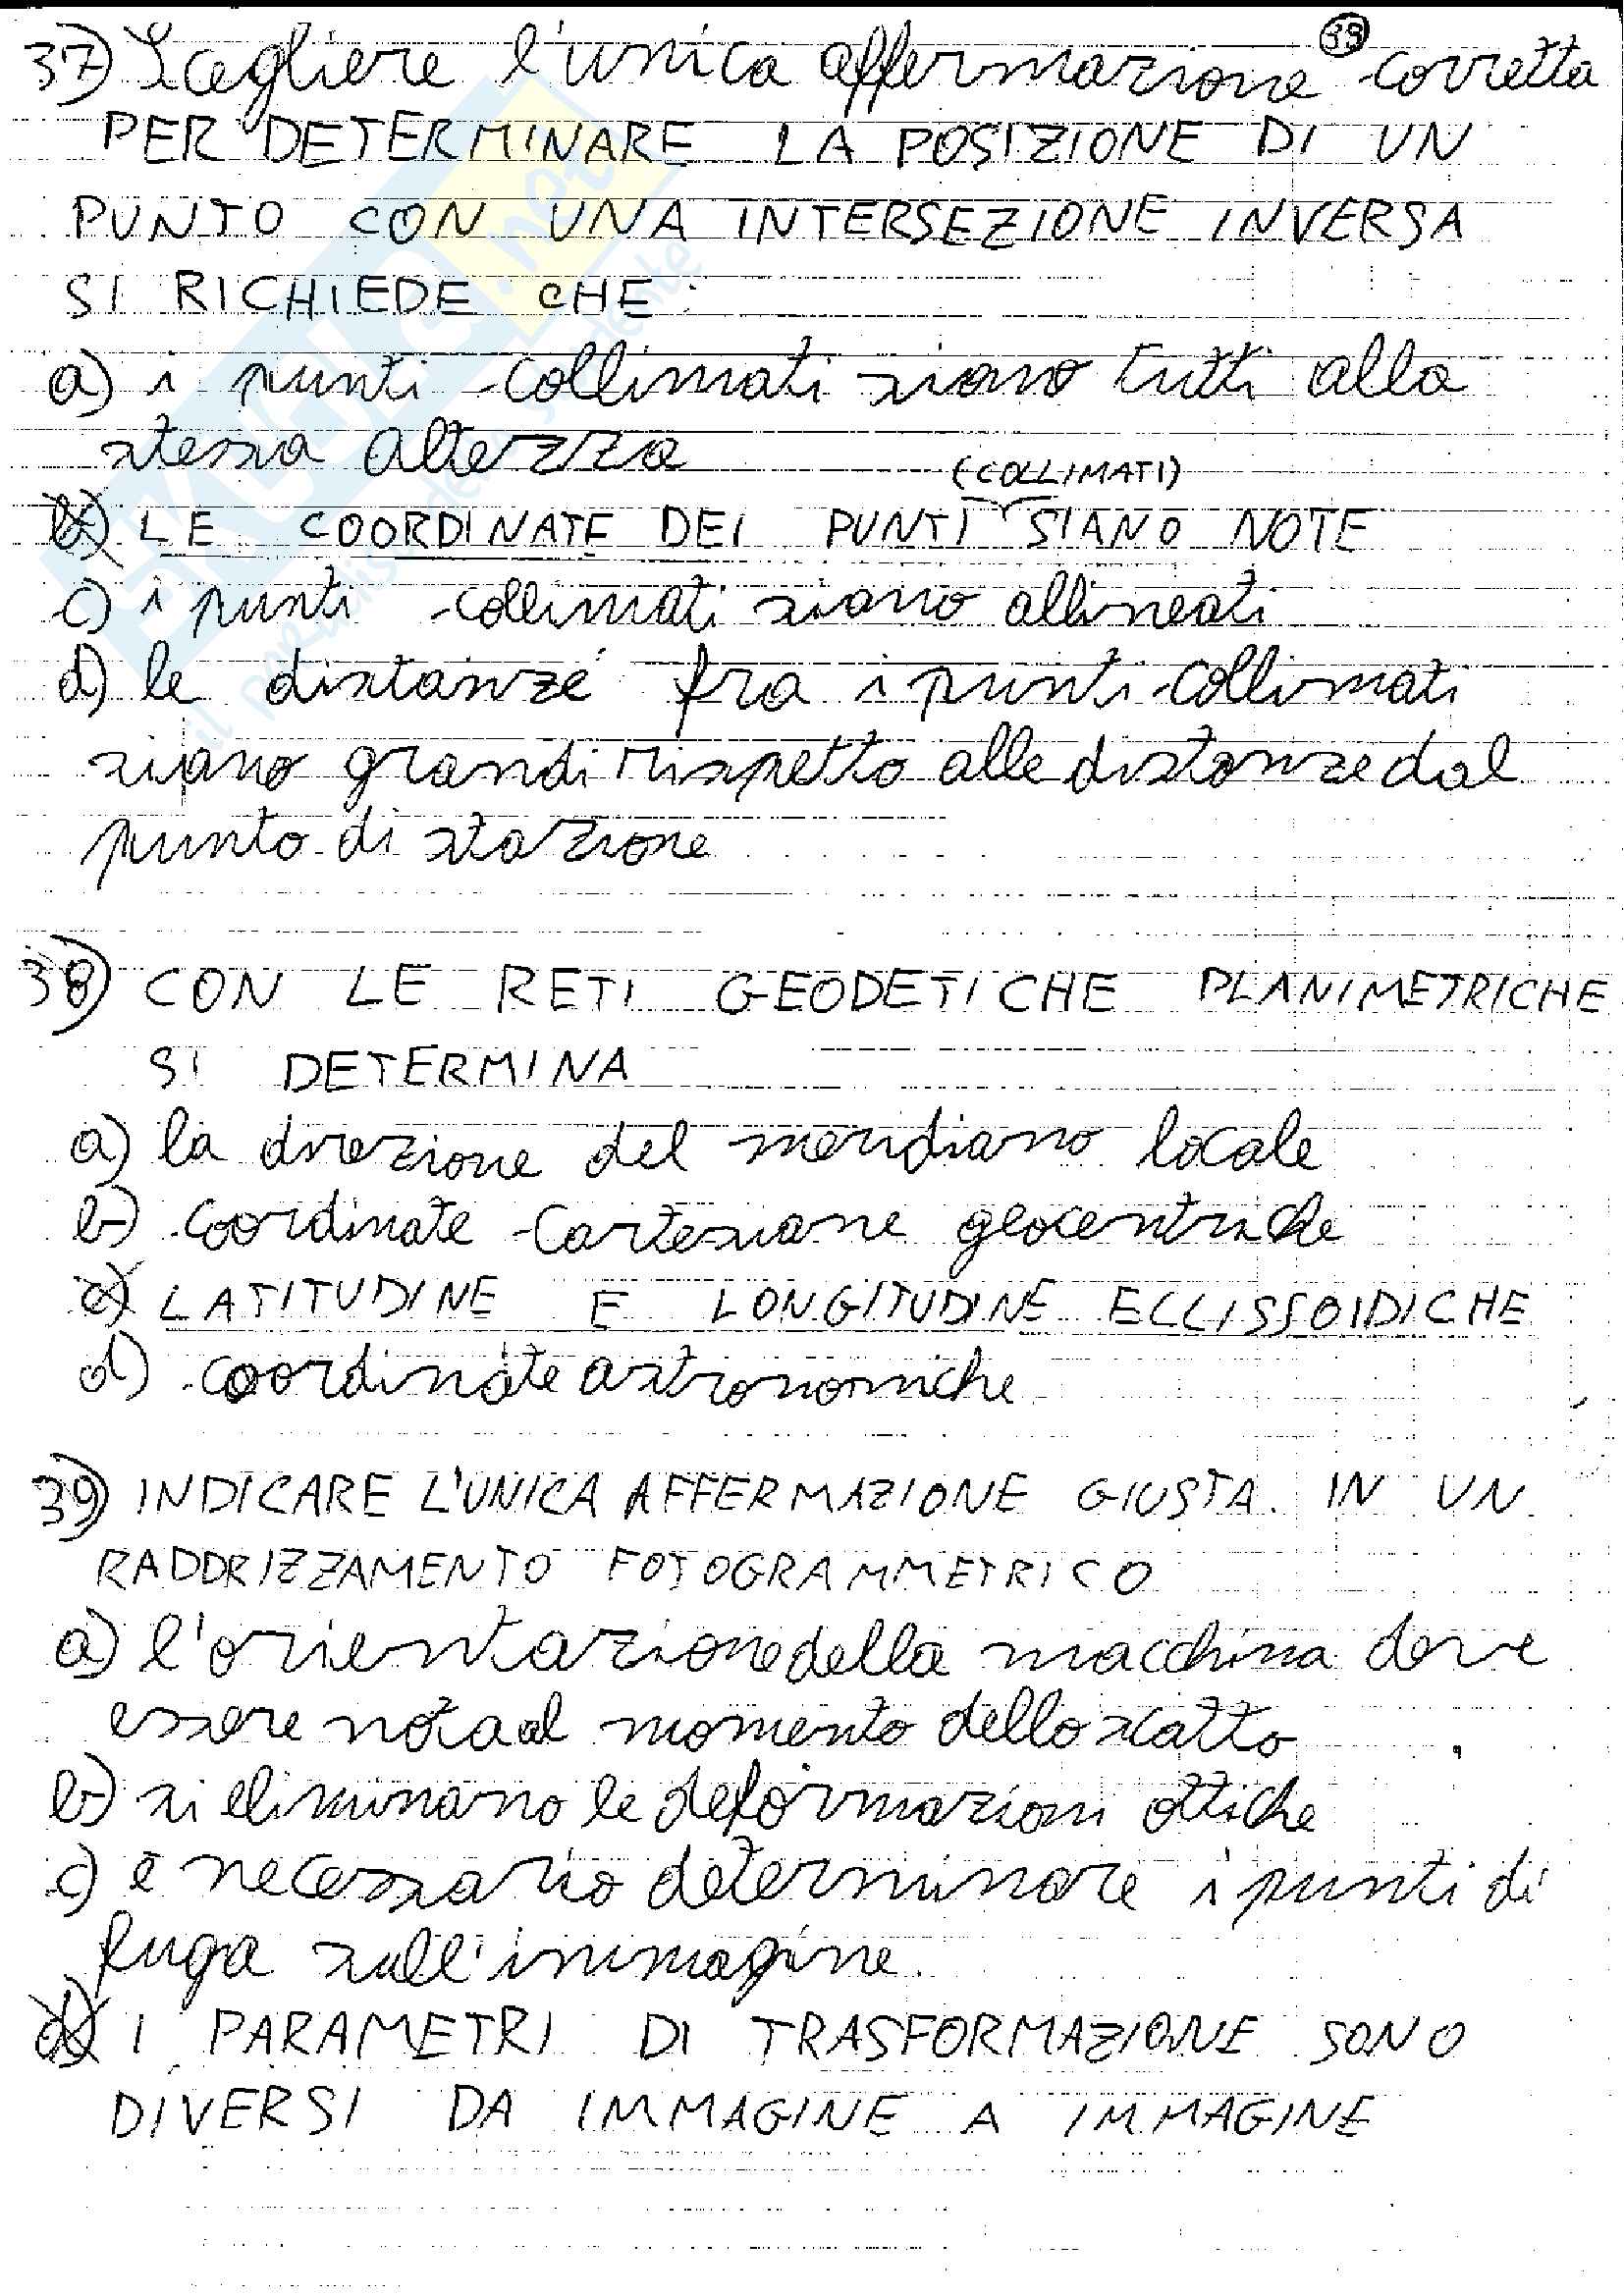 37) Scegliere l'unica affermazione (39) corretta
PER DETERMINARE LA POSIZIONE DI UN
PUNTO CON UNA INTERSEZIONE INVERSA
SI RICHIEDE CHE:
a) i punti collimati siano tutti alla
stessa altezza
(COLLIMATI)
b) LE COORDINATE DEI PUNTI SIANO NOTE
c) i punti collimati siano allineati
d) le distanze fra i punti collimati
siano grandi rispetto alle distanze dal
punto di stazione
38) CON LE RETI GEODETICHE PLANIMETRICHE
SI DETERMINA
a) la direzione del meridiano locale
b) coordinate cartesiane geocentriche
c) LATITUDINE E LONGITUDINE ECLISSOIDICHE
d) coordinate astronomiche
39) INDICARE L'UNICA AFFERMAZIONE GIUSTA. IN UN
RADDRIZZAMENTO FOTOGRAMMETRICO
a) l'orientazione della macchina deve
essere nota al momento dello scatto
b) si eliminano le deformazioni ottiche
c) è necessario determinare i punti di
fuga sull'immagine.
d) I PARAMETRI DI TRASFORMAZIONE SONO
DIVERSI DA IMMAGINE A IMMAGINE